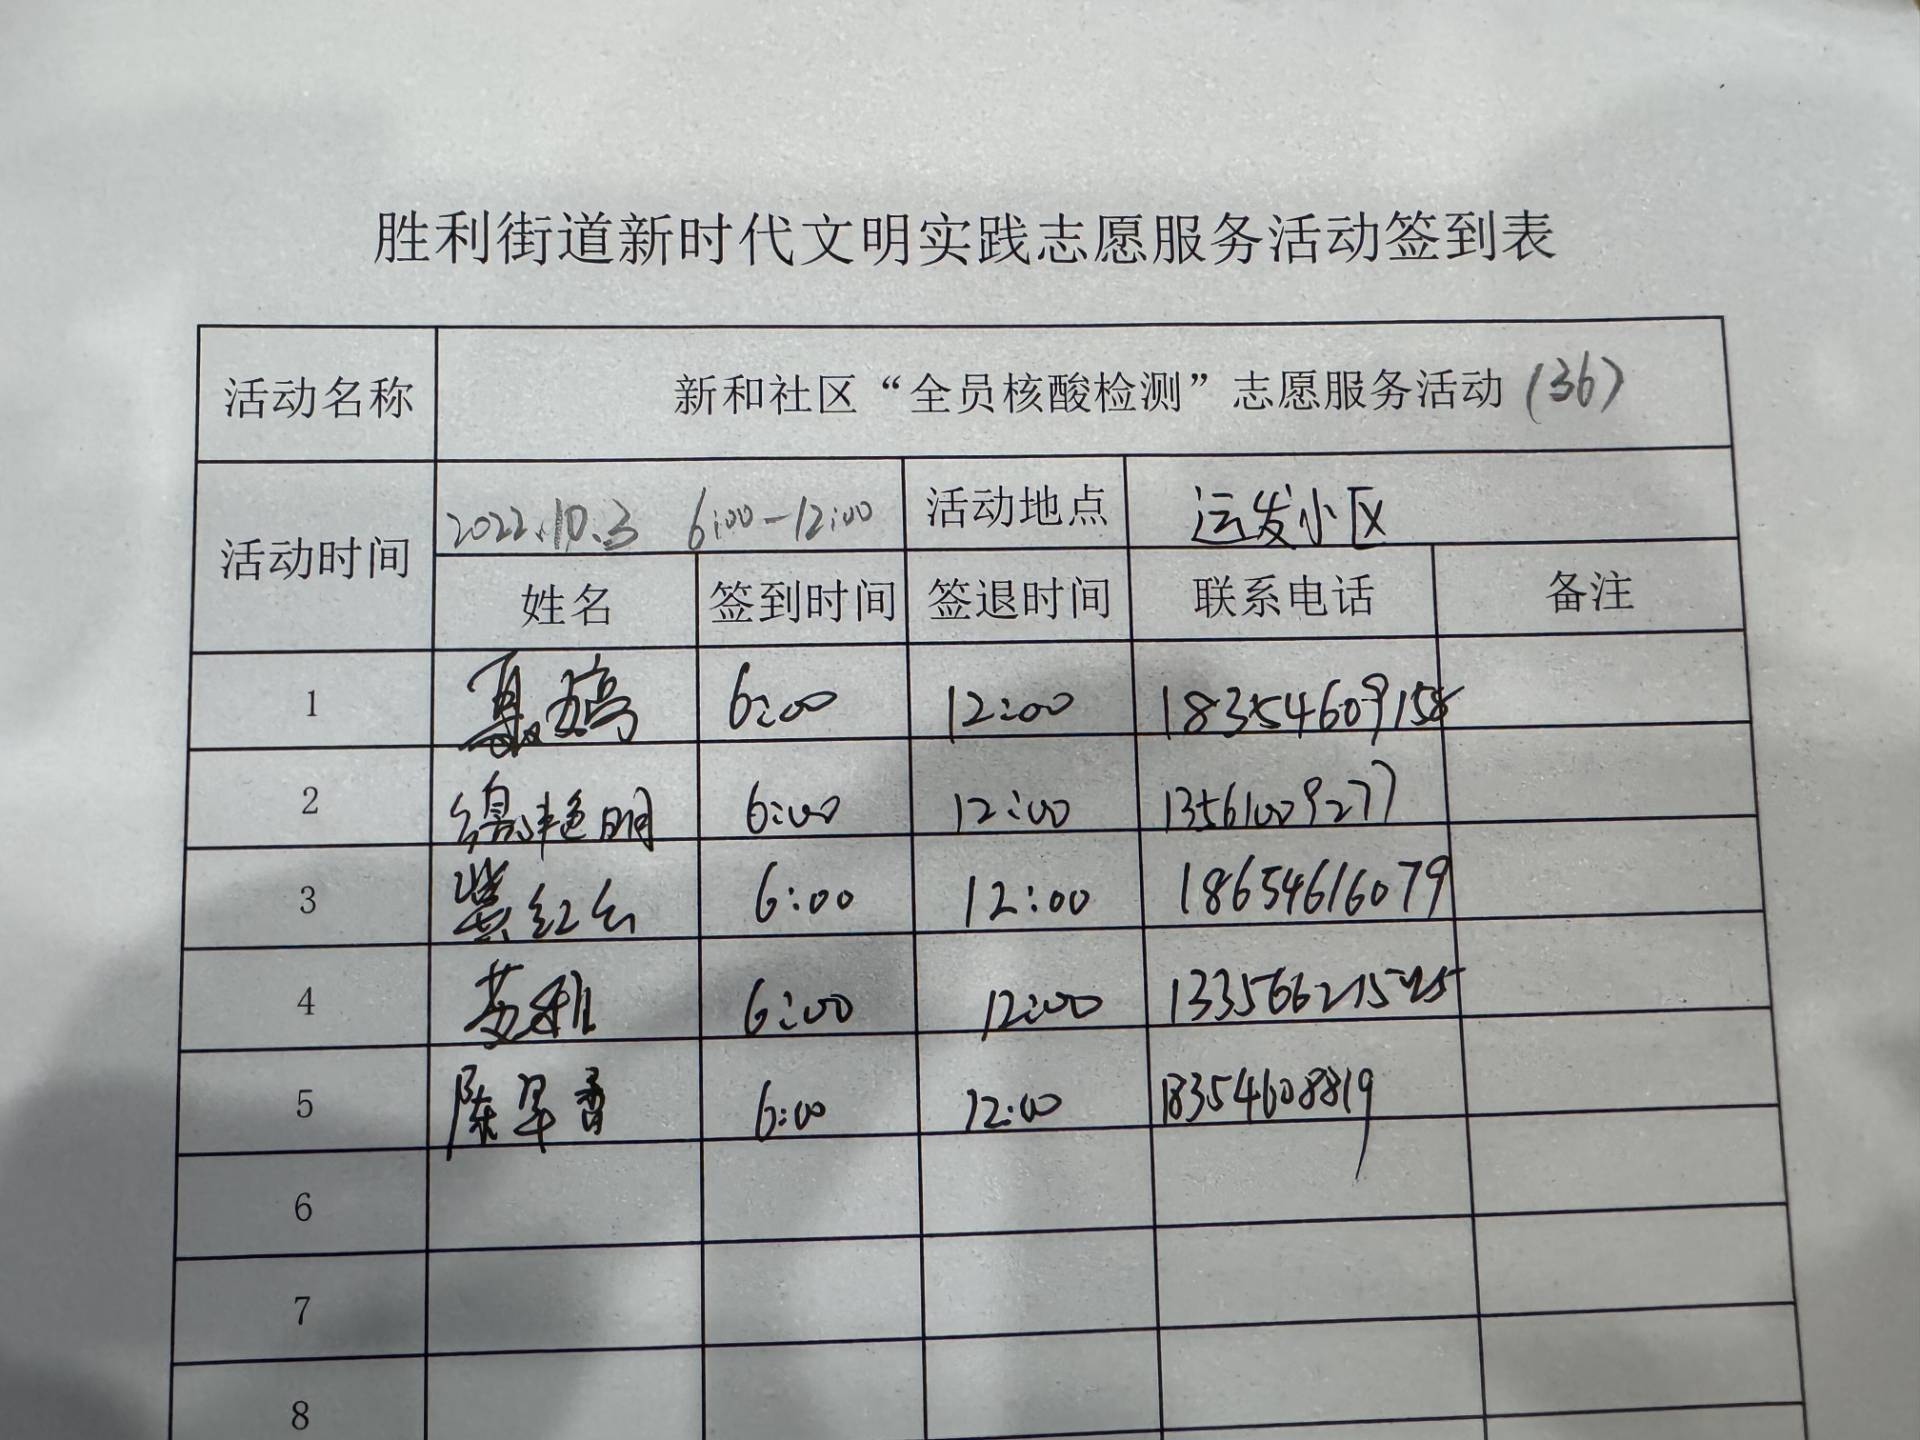 胜利街道新时代文明实践志愿服务活动签到表
活动名称 新和社区“全员核酸检测”志愿服务活动 (36)
活动时间 2022.10.3 6:00-12:00 活动地点 运发小区
姓名 签到时间 签退时间 联系电话 备注
1 6:00 12:00 18354609158
2 艳明 6:00 12:00 13561009277
3 6:00 12:00 18654616079
4 6:00 12:00
5 陈早香 6:00 12:00 18354608819
6
7
8